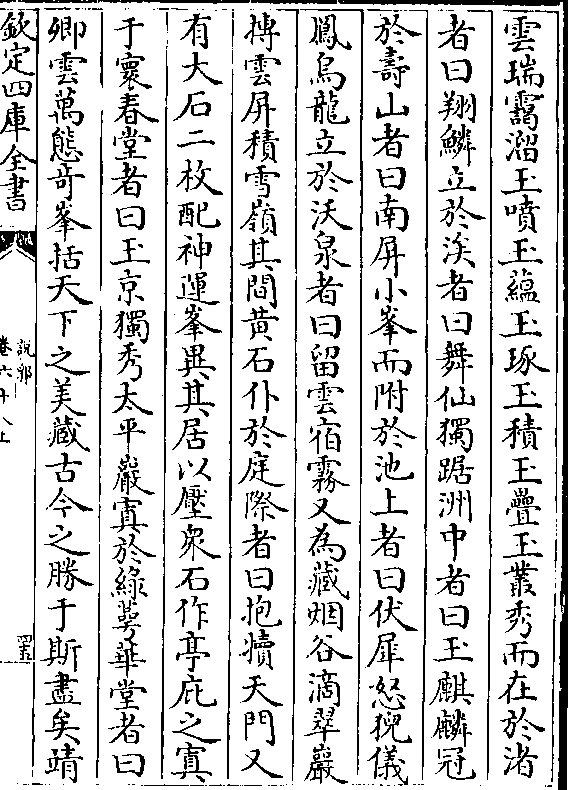 雲瑞靄溜玉噴玉蘊玉琢玉積玉疊玉叢秀而在於渚
者曰翔鱗立於涘者曰舞仙獨踞洲中者曰玉麒麟冠
於壽山者曰南屏小峯而附於池上者曰伏犀怒猊儀
鳳烏龍立於沃泉者曰留雲宿霧又為藏烟谷滴翠巖
搏雲屏積雪嶺其間黄石仆於庭際者曰抱犢天門又
有大石二枚配神運峯異其居以壓衆石作亭庇之寘
于寰春堂者曰玉京獨秀太平巖寘於綠萼華堂者曰
卿雲萬態奇峯括天下之美藏古今之勝于斯盡矣靖
欽定四庫全書
說郛
卷六十八上